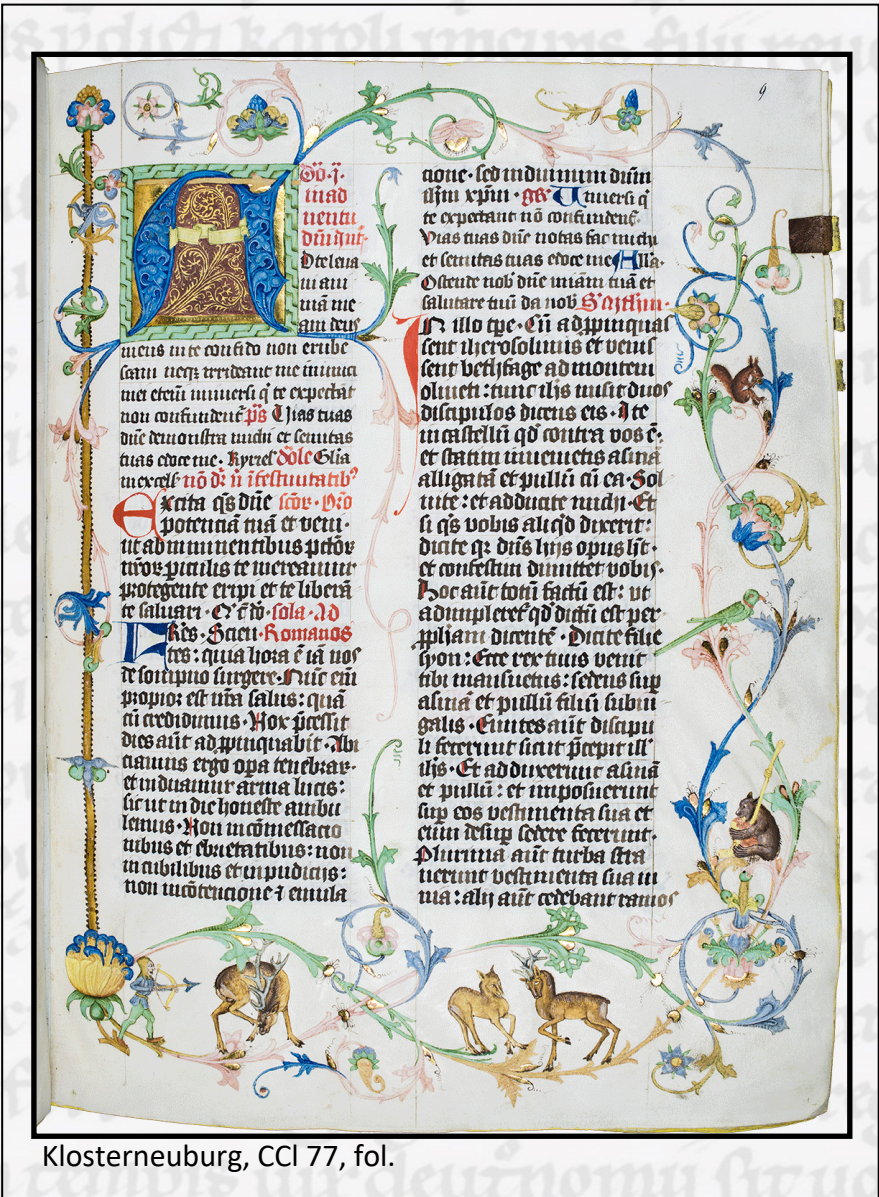 9
A
Do.j.
in ad
uentu
dni Int
D te leua
ui am
mā me
am deus
meus in te confido non erube
scam neq̄ irrideant me inimici
mei etem uniuersi q̄ te expectāt
non confundent̄ p̄s Uias tuas
dn̄e demonstra michi et semitas
tuas edoce me. Kyriel Glīa
in excels nō dr̄
Excita q̄s dn̄e Oro
potenciā tuā et veni.
ut ab imminentibus pctōr
nr̄or p̄iculis te mereamur
protegente eripi et te liberā
te saluari. sola. Ad
Romanos
Frēs. Scien
tes: quia hora ē iā nos
de sompno surgere. Nūc em̄
propior est nr̄a salus: quā
cū credidimus. Nox p̄cessit
dies aūt adp̱pinquabit. Abi
ciamus ergo oṗa tenebrar.
et induamur arma lucis:
sicut in die honeste ambu
lemus. Non in cōmessacō
nibus et ebrietatibus: non
in cubilibus et inpudicijs:
non in cōtencione ⁊ emula
cione. sed induimini dn̄m
ih̄m xpm̄. gr̄ Uniuersi q̄
te expectant nō confundent̄
Vias tuas dn̄e notas fac michi
et semitas tuas edoce me All̄a.
Ostende nob̄ dn̄e miām tuā et
salutare tuū da nob̄
In illo tp̄e. Cū adp̱pinquas
sent iherosolimis et venis
sent bethfage ad montem
oliueti: tunc ih̄s misit duos
discipulos dicens eis. Ite
in castellū qd̄ contra vos ē.
et statim inuenietis asinā
alligatā et pullū cū ea. Sol
uite: et adducite michi. Et
si q̄s vobis aliq̄d dixerit:
dicite q̄ dn̄s hijs opus h̄t.
et confestim dimittet vobis.
Hoc aūt totū factū est: ut
adimpleret̄ qd̄ dictū est per
p̱phām dicentē. Dicite filie
syon: Ecce rex tuus venit
tibi mansuetus: sedens sup̄
asinā et pullū filiū subiu
galis. Euntes aūt discipu
li fecerunt sicut p̄cepit ill
ih̄s. Et adduxerunt asinā
et pullū: et imposuerunt
sup̄ eos vestimenta sua et
eum desup̄ sedere fecerunt.
Plurima aūt turba stra
uerunt vestimenta sua in
uia: alij aūt cedebant ramos
Klosterneuburg, CCl 77, fol.